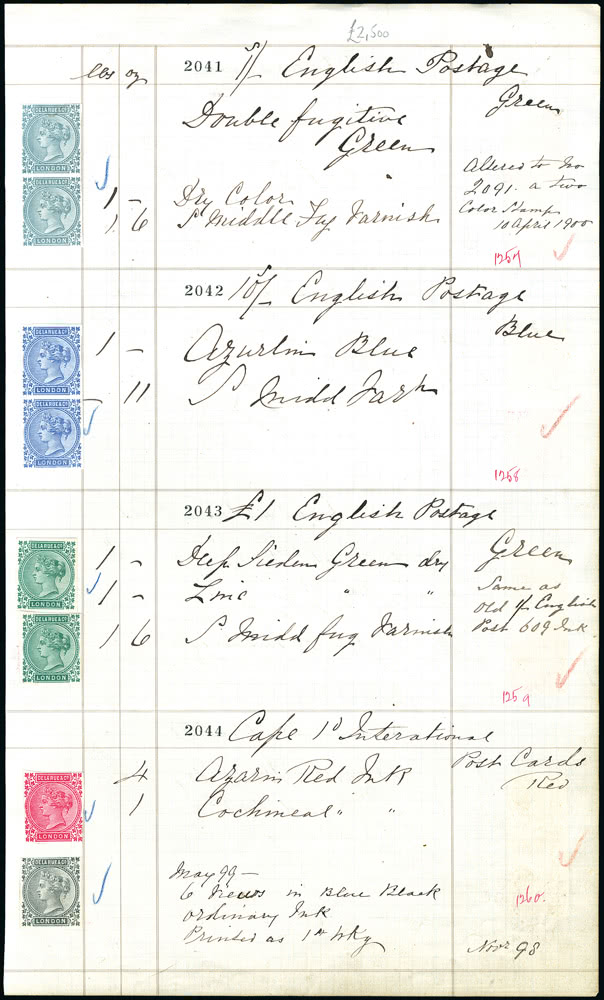 £2,500
lbs oz
2041 1/ English Postage
Green
Double fugitive
Green
Altered to No
2091. a two
Color Stamp
10 April 1900
1 – Dry Color
1. 6 S Middle Fug Varnish
1257
2042 10/ English Postage
Blue
1 – Azurlin Blue
– 11 S Midd Varh
1258
2043 £1 English Postage
Green
1 – Deep Green dry
1 – Zinc " "
1 6 S Midd fug Varnish
Same as
Old 1/ English
Post 609 Ink
1259
2044 Cape 1d International
Post Cards
Red
4 Azarin Red Ink
1 Cochineal " "
May 99 –
6 in Blue Black
ordinary Ink
Printed as 1st Wkg
1260.
Novr 98
DE LA RUE & Co
LONDON
DE LA RUE & Co
LONDON
DE LA RUE & Co
LONDON
DE LA RUE & Co
LONDON
DE LA RUE & Co
LONDON
DE LA RUE & Co
LONDON
DE LA RUE & Co
LONDON
DE LA RUE & Co
LONDON